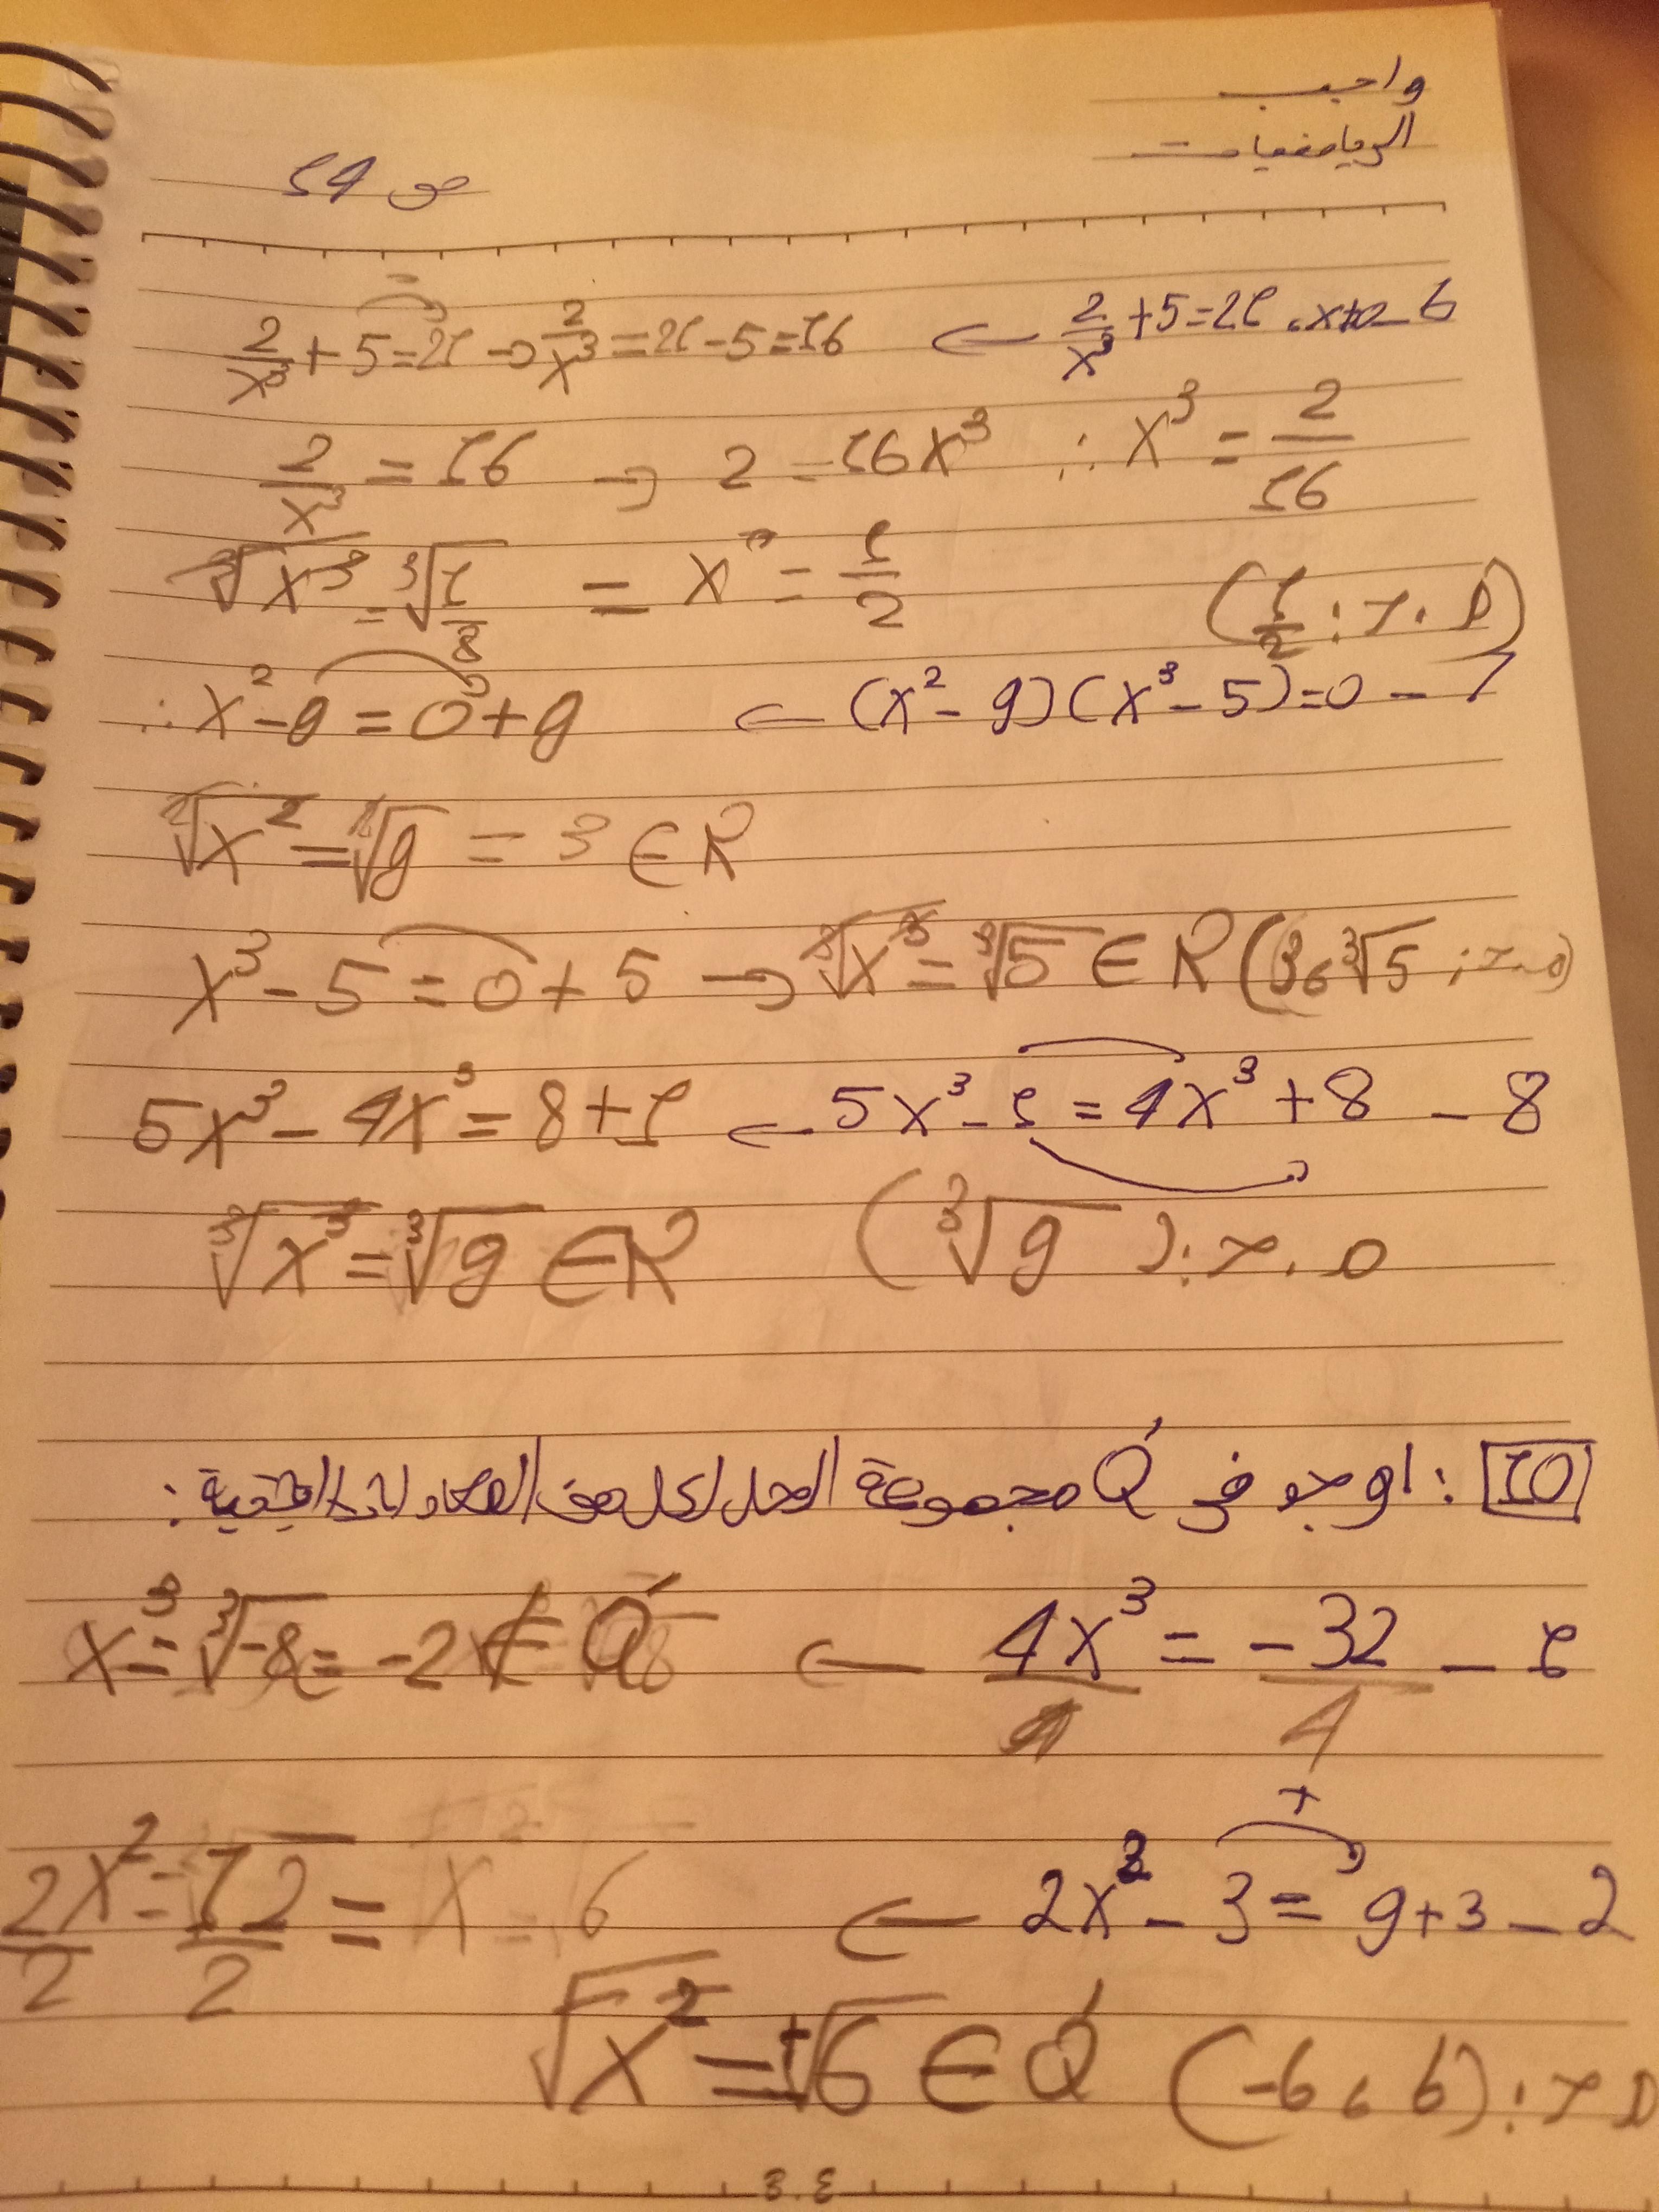 واجب
الرياضيات
ص 14
2/x³ + 5 = 21 ، x≠0 - 6 ← 2/x³ + 5 = 21 → 2/x³ = 21 - 5 = 16
2/x³ = 16 → 2 = 16x³ ∴ x³ = 2/16
∛x³ = ∛(1/8) = x = 1/2 (1/2 : م.ح)
(x² - 9)(x³ - 5) = 0 - 7 ← ∴ x² - 9 = 0 + 9
√x² = √9 = 3 ∈ R
x³ - 5 = 0 + 5 → ∛x³ = ∛5 ∈ R (3 ، ∛5 : م.ح)
5x³ - 1 = 4x³ + 8 - 8 ← 5x³ - 4x³ = 8 + 1
∛x³ = ∛9 ∈ R (∛9) : م.ح
10 : اوجد فى Q́ مجموعة الحل لكل من المعادلات الاتية :
4x³/4 = -32/4 - 1 ← x³ = ∛-8 = -2 ∉ Q́
2x² - 3 = 9 + 3 - 2 ← 2x²/2 = 12/2 = x² = 6
√x² = ±√6 ∈ Q́ (-6 ، 6) : م ح